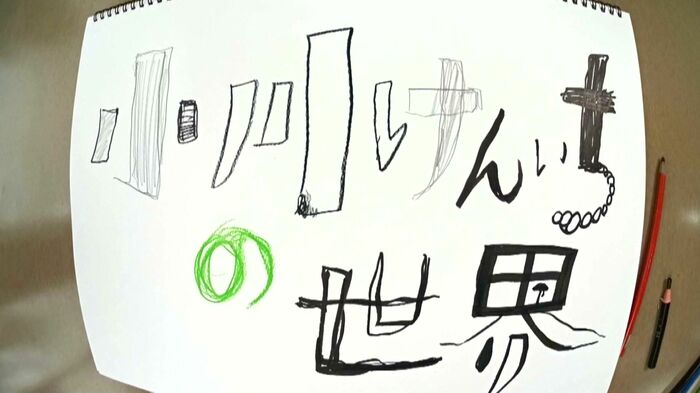 小川けんいち
の世界